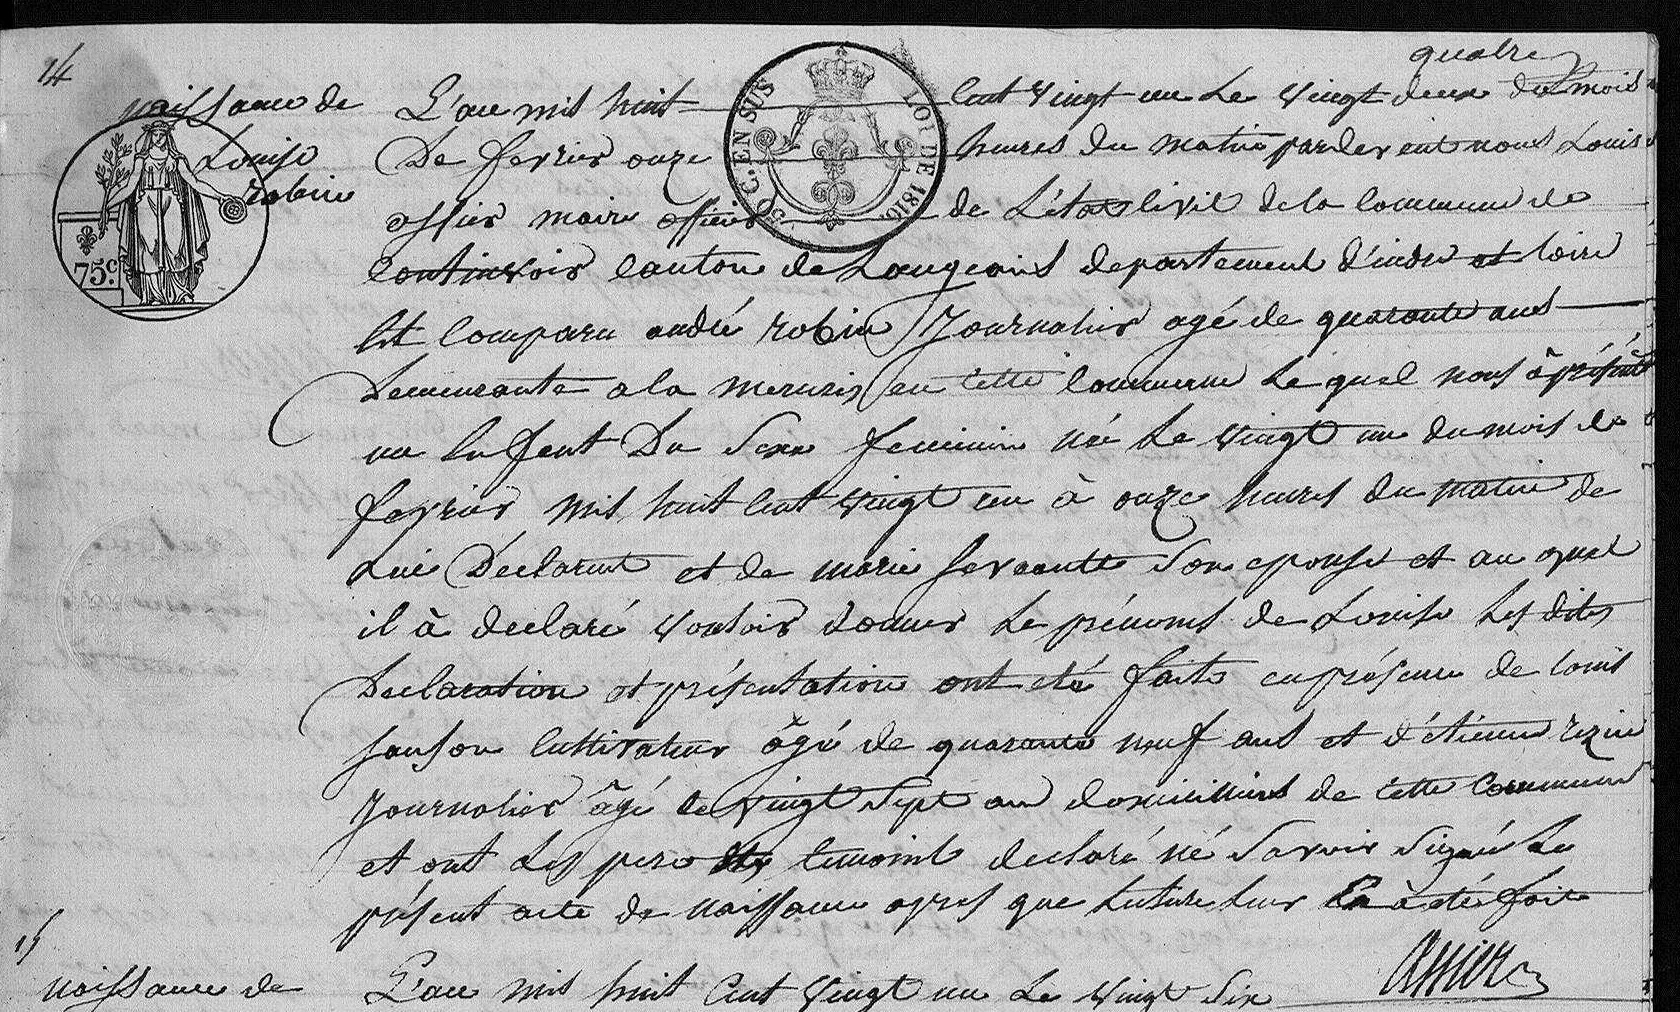 quatre
14
naissance de
Louise
robin
75c.
SUS EN C.
LOI DE 1816.
L'an mil huit cent vingt un Le vingt deux du mois
De fevrier onze heures du matin pardevent nous Louis
assier maire officier de L'état livil de la Commune de
Continvoir canton de Langeais departement d'indre et loire
Est Comparu andré robin Journalier agé de quarante ans
Demeurante a la en cette commune Le quel nous à présenté
un Enfent Du Sexe feminin née Le vingt un du mois de
fevrier mil huit Cent vingt un à onze heures du matin de
Lui Déclarant et de marie Servante Son epouse et au quel
il à declaré vouloir donner Le prénoms de Louise Les dites
Declaration et présentation ont eté faite en présence de louis
sanson cultivateur âgé de quarante neuf ans et d'étienne
Journalier âgé de vingt Sept ans domicilliers de cette Commune
et ont Les pere temoint declaré né Savoir Signé Le
présent acte de naissance apres que Lecture Leur En à eté faite
assier
15
naissance de
L'an mil huit Cent vingt un Le vingt Six